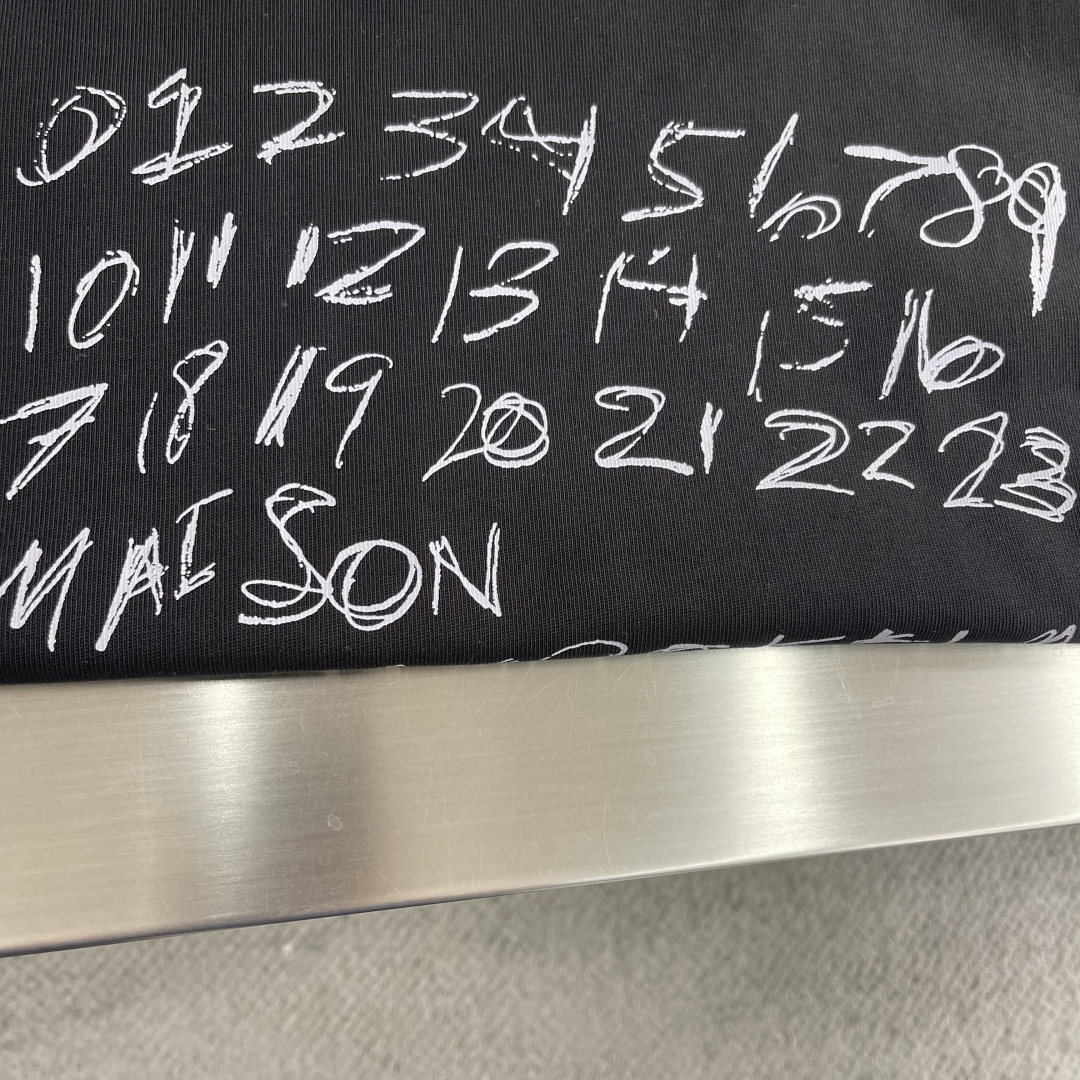 0 1 2 3 4 5 6 7 8 9
10 11 12 13 14 15 16
7 18 19 20 21 22 23
MAISON